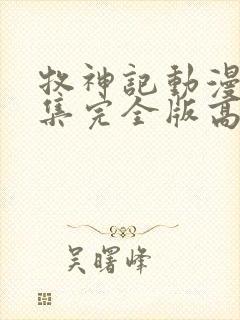 牧神記動漫
集完全版高
吴曙峰